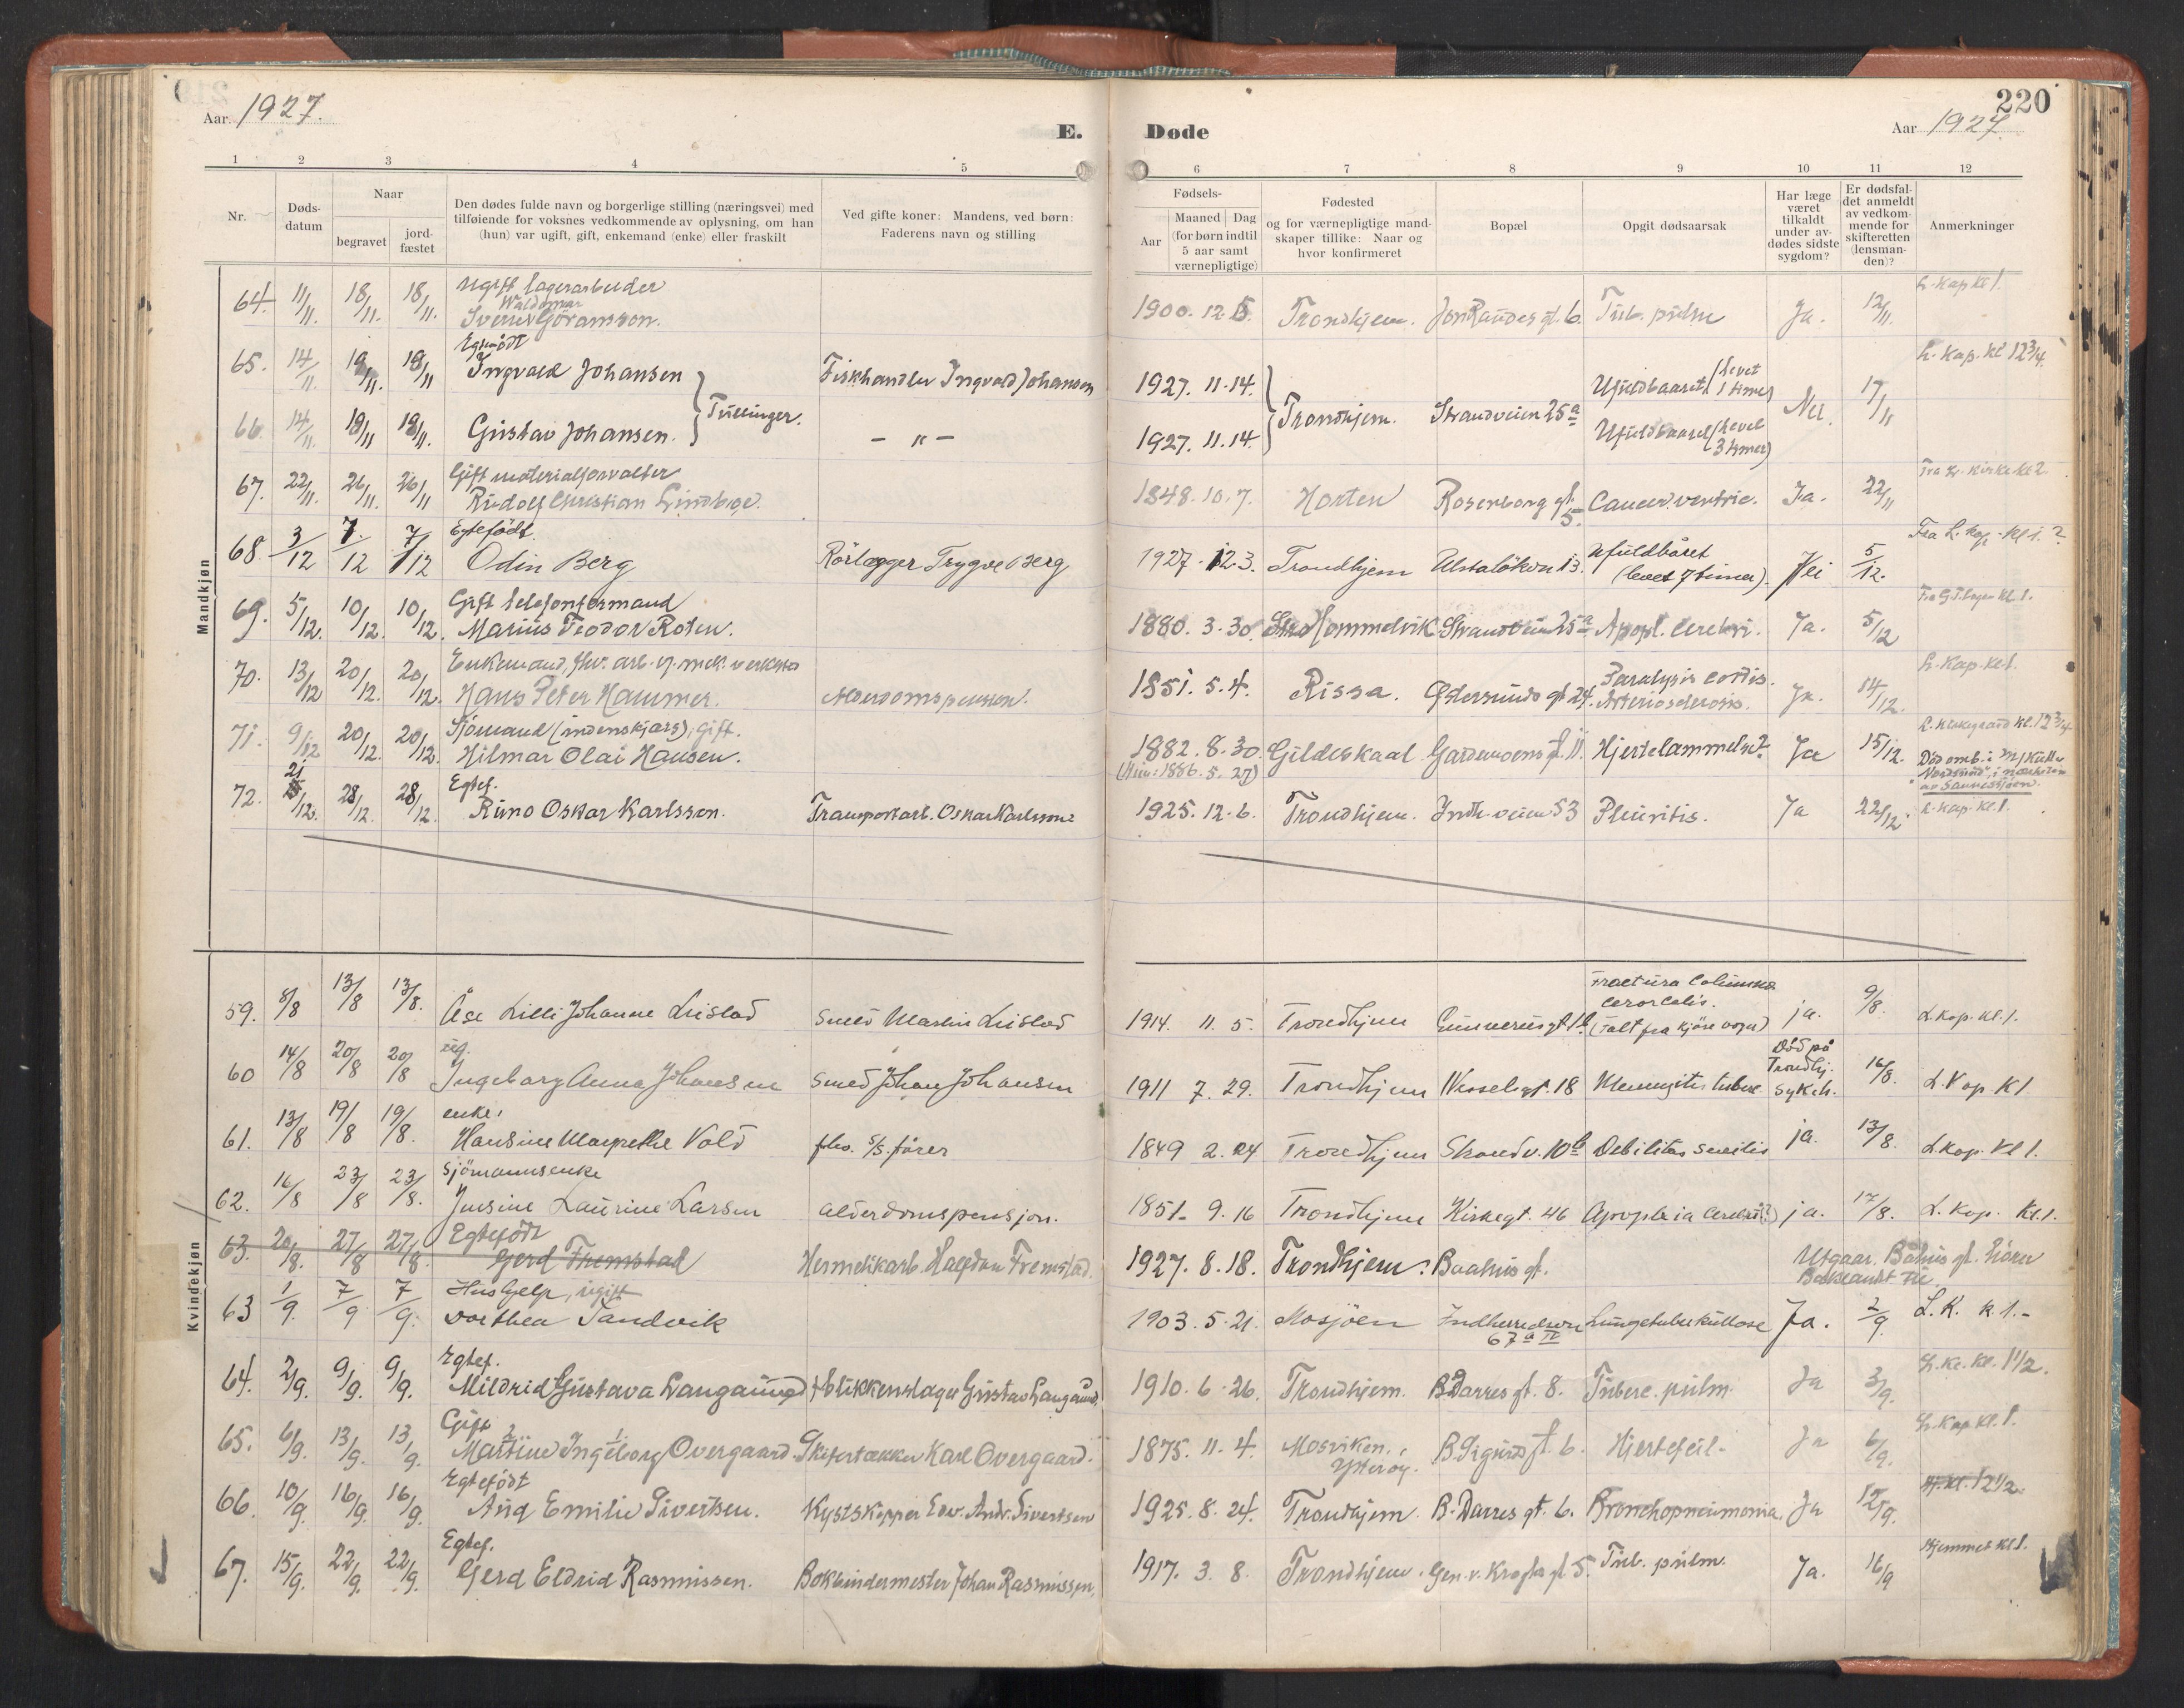 220
Aar. 1927.
E. Døde
Aar 1927.
1 2 3 4 5 6 7 8 9 10 11 12
Nr.
Døds-
datum
Naar
begravet
jord-
fæstet
Den dødes fulde navn og borgerlige stilling (næringsvei) med
tilføiende for voksnes vedkommende av oplysning, om han
(hun) var ugift, gift, enkemand (enke) eller fraskilt
Ved gifte koner: Mandens, ved børn:
Faderens navn og stilling
Fødsels-
Aar
Maaned Dag
(for børn indtil
5 aar samt
værnepligtige)
Fødested
og for værnepligtige mand-
skaper tillike: Naar og
hvor konfirmeret
Bopæl
Opgit dødsaarsak
Har læge
været
tilkaldt
under av-
dødes sidste
sygdom?
Er dødsfal-
det anmeldt
av vedkom-
mende for
skifteretten
(lensman-
den)?
Anmerkninger
Mandkjøn
Ugift lagerarbeider L. Kap kl 1.
Waldemar
64. 11/11. 18/11. 18/11. Sverre Göransson. 1900. 12. 5. Trondhjem. Jon Raudes gt. 6. Tub. pulm Ja. 12/11.
Egtefödt L. Kap. kl 12 3/4.
65. 14/11. 19/11. 19/11 Ingvald Johansen Fiskhandler Ingvald Johansen 1927. 11. 14. Ufuldbaaret (levet 1 time)
Tvillinger. Trondhjem. Strandveien 25a Nei. 17/11
66. 14/11. 19/11 19/11. Gustav Johansen. — " — 1927. 11. 14. Ufuldbaaret (levet 3 timer)
Gift materialforvalter Fra L. kirke kl 2.
67. 22/11. 26/11. 26/11 Rudolf Christian Lindboe. 1848. 10. 7. Horten Rosenborg gt. 5. Cancer ventric. Ja. 22/11
Egtefödt. Fra L. Kap. kl 1. ?
68. 3/12 7/12 7/12 Odin Berg Rörlægger Trygve Berg 1927. 12. 3. Trondhjem Ulstalökven 13. Ufuldbåret (levet 7 timer). Nei 5/12.
Gift telefonformand
69. 5/12. 10/12. 10/12. Marius Teodor Roten. 1880. 3. 30. Hommelvik Strandveien 25a Apopl. cerebri. Ja. 5/12
Enkemand, fhv. arb. v. mek. verksted L. Kap. kl 1.
70. 13/12 20/12. 20/12. Hans Peter Hammer. Alderdomspension. 1851. 5. 4. Rissa. Östersunds gt 24. Paralysis cordis. Arteriosclerosis. Ja. 14/12.
Sjömand (indenskjærs), gift. L. Kirkegaard kl. 12 3/4
71. 9/12 20/12. 20/12. Hilmar Olai Hansen. 1882. 8. 30. Gildeskaal Gardemoens gt. 11. Hjertelammelse? Ja 15/12. Död omb. i M/Kutter
(Min: 1886. 5. 27) "Nordstråd", i nærheten
av Sannessjöen.
Egtef. L. Kap. Kl. 1.
72. 21/12. 28/12. 28/12. Runo Oskar Karlsson. Transportarb. Oskar Karlsson 1925. 12. 6. Trondhjem. Indh. veien 53 Pleuritis. Ja 22/12
Kvindekjøn
59. 8/8 13/8 13/8. Åse Lilli Johanne Leistad Smed Martin Leistad 1914. 11. 5. Trondhjem Gunnerusgt 1b Fractura Columna Cervicalis. (Falt fra kjöre vogn) ja. 9/8. L. Kap. Kl. 1.
ug. Död på
60 14/8 20/8 20/8 Ingeborg Anna Johansen Smed Johan Johansen 1911 7. 29. Trondhjem Wesselsgt. 18 Meningitis tuberc. Trondhj. sykeh. 16/8. L. Kap Kl
enke,
61. 13/8 19/8 19/8. Hansine Margrethe Vold fhv. S/S. förer 1849 2. 24 Trondhjem Strandv. 10b Debilitas senilis ja. 13/8. L. Kap. Kl 1.
Sjömannsenke
62. 16/8 23/8 23/8. Jensine Laurine Larsen alderdomspensjon. 1851. 9. 16 Trondhjem Kirkegt. 46 Apoplexia cerebri (?) ja. 17/8. L. Kap. Kl. 1.
Egtefödt
63. 20/8. 27/8 27/8. Gerd Fremstad Hermetikarb. Halfdan Fremstad. 1927. 8. 18. Trondhjem. Baahus gt. Utgaar. Båhus gt. hörer Baklandet til.
Hushjelp, ugift
63 1/9. 7/9 7/9. Dorthea Sandvik 1903. 5. 21. Mosjöen Indherredsvn 67a IV Lungetuberkullose Ja. 2/9. L. K. k 1.-
Egtef. L. K. Kl. 1 1/2.
64. 2/9. 9/9. 9/9. Mildrid Gustava Langaune Blikkenslager Gustav Langaune. 1910. 6. 26. Trondhjem. B. Darres gt. 8. Tuberc. pulm. Ja 3/9.
Gift L. Kap Kl. 1.
2. 1.
65. 6/9. 13/9. 13/9. Martine Ingeborg Overgaard. Skifertækker Karl Overgaard. 1875. 11. 4. Mosviken, Ytteröy. B. Sigurds gt. 6. Hjertefeil. Ja 6/9.
Egtefödt kl. 12 1/2.
66. 10/9. 16/9. 16/9. Aug Emilie Sivertsen. Kystskipper Edv. Andr. Sivertsen 1925. 8. 24. Trondhjem. B. Darres gt. 6. Bronchopneumonia. Ja 12/9.
Egtef. Hjemmet kl 1.
67. 15/9. 22/9. 22/9. Gerd Eldrid Rasmussen. Bokbindermester Johan Rasmussen. 1917. 3. 8. Trondhjem. Gen. v. Kroghs gt 5. Tub. pulm. Ja. 16/9